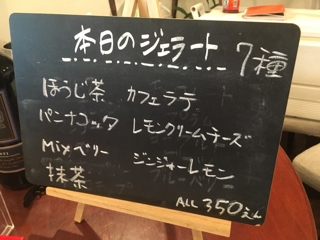 本日のジェラート 7種
ほうじ茶 カフェラテ
パンナコッタ レモンクリームチーズ
Mixベリー ジンジャーレモン
抹茶
ALL 350えん